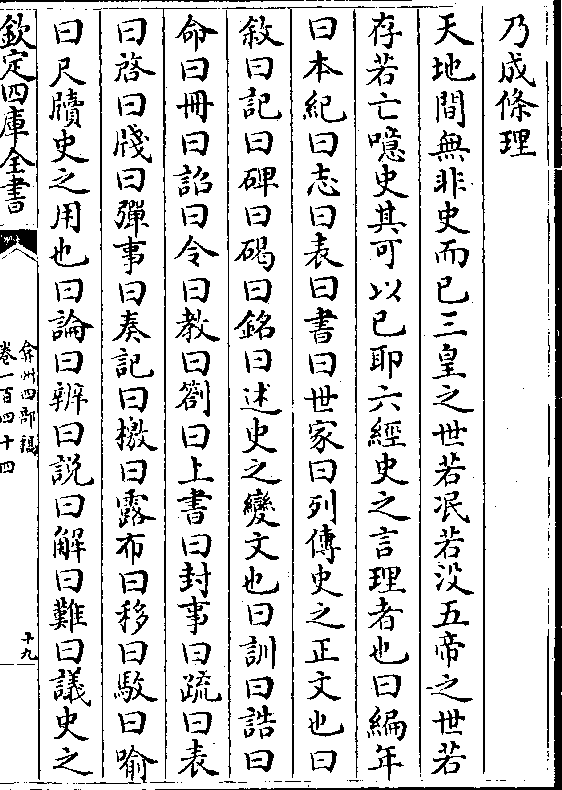 乃成條理
天地間無非史而已三皇之世若泯若没五帝之世若
存若亡噫史其可以已耶六經史之言理者也曰編年
曰本紀曰志曰表曰書曰世家曰列傳史之正文也曰
敘曰記曰碑曰碣曰銘曰述史之變文也曰訓曰誥曰
命曰冊曰詔曰令曰教曰劄曰上書曰封事曰疏曰表
曰啓曰牋曰彈事曰奏記曰檄曰露布曰移曰駮曰喻
曰尺牘史之用也曰論曰辨曰説曰解曰難曰議史之
欽定四庫全書
弇州四部稿
卷一百四十四
十九